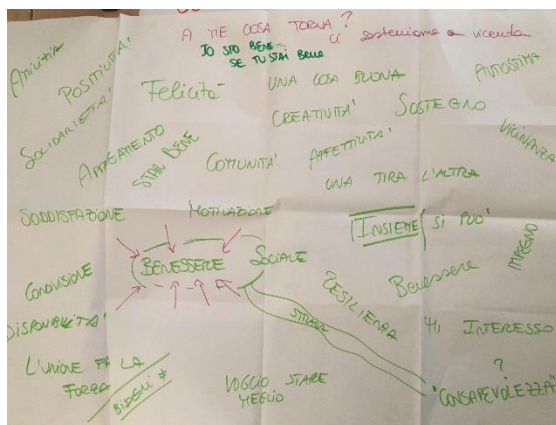 A ME COSA TORNA?
IO STO BENE
SE TU STAI Bene
ci sosteniamo a vicenda
AMICIZIA
POSITIVITA'
Felicità
UNA COSA BUONA
AUTOSTIMA
SOLIDARIETA'
CREATIVITA'
SOSTEGNO
VICINANZA
STAR BENE
COMUNITA'
AFFETTIVITA'
UNA TIRA L'ALTRA
SODDISFAZIONE
MOTIVAZIONE
INSIEME SI PUO'
IMPEGNO
BENESSERE SOCIALE
CONDIVISIONE
RESILIENZA
Benessere
DISPONIBILITA'
STRADE
MI INTERESSO
?
L'UNIONE FA LA
FORZA
BISOGNI ≠
VOGLIO STARE
MEGLIO
"CONSAPEVOLEZZA"